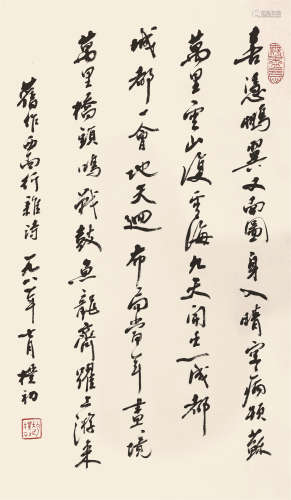 喜憑鵬翼又南圖身入晴空病頓蘇
萬里雲山復雲海九天開出一成都
城都一會地天迴布局當年畫境
萬里橋頭鳴戰鼓魚龍齊躍上游來
舊作西南行雜詩一九八一年七月樸初